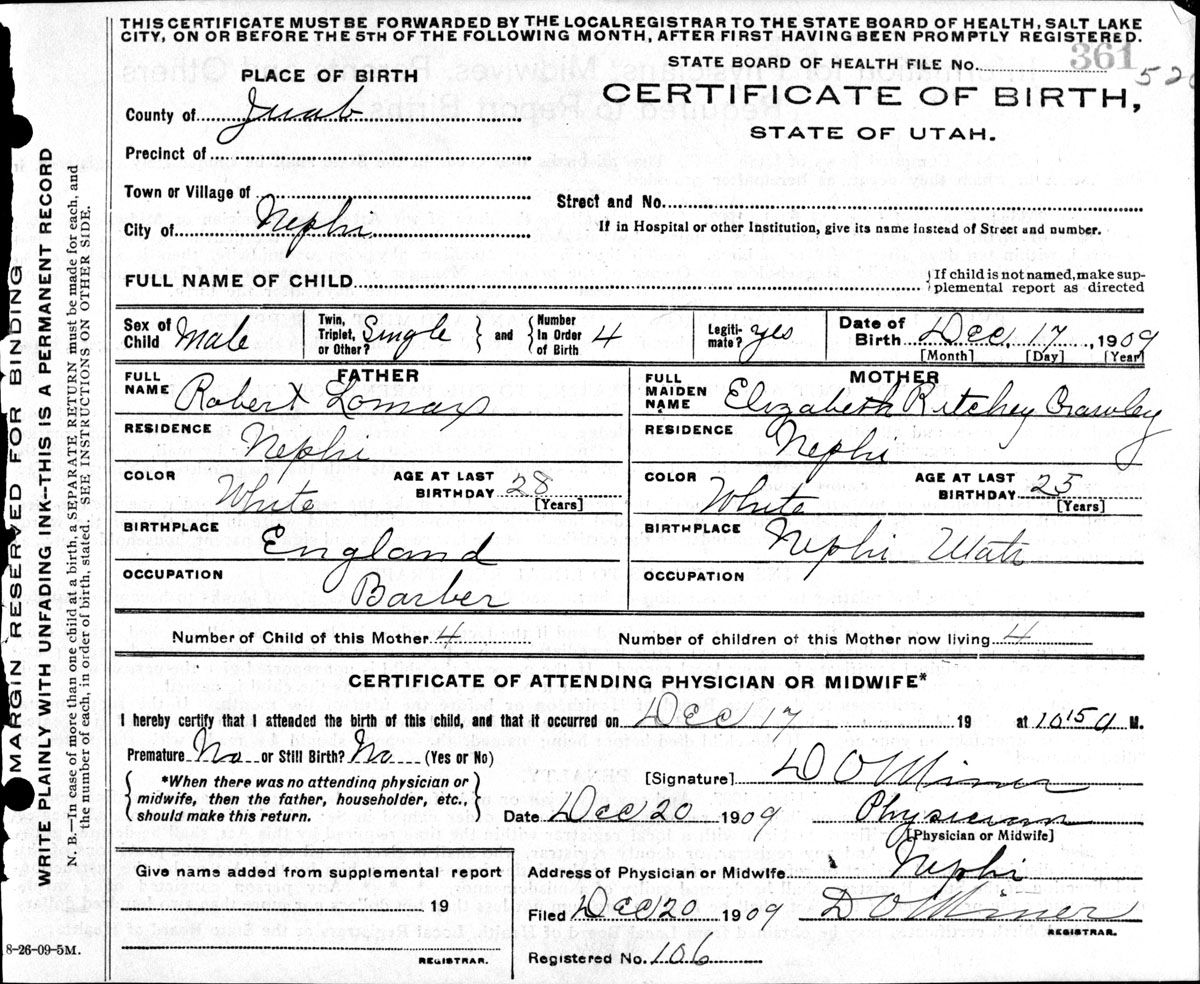 THIS CERTIFICATE MUST BE FORWARDED BY THE LOCAL REGISTRAR TO THE STATE BOARD OF HEALTH, SALT LAKE
CITY, ON OR BEFORE THE 5TH OF THE FOLLOWING MONTH, AFTER FIRST HAVING BEEN PROMPTLY REGISTERED.
STATE BOARD OF HEALTH FILE NO. 361 520
PLACE OF BIRTH
CERTIFICATE OF BIRTH,
STATE OF UTAH.
County of Juab
Precinct of
Town or Village of
Street and No.
City of Nephi
If in Hospital or other Institution, give its name instead of Street and number.
FULL NAME OF CHILD
If child is not named, make sup-
plemental report as directed
Sex of Child Male
Twin, Triplet, or Other? Single and Number In Order of Birth 4
Legiti-mate? yes
Date of Birth Dec. 17, 1909
[Month] [Day] [Year]
FATHER
FULL NAME Robert Lomax
MOTHER
FULL MAIDEN NAME Elizabeth Ritchey Crawley
RESIDENCE Nephi
RESIDENCE Nephi
COLOR White
AGE AT LAST BIRTHDAY 28 [Years]
COLOR White
AGE AT LAST BIRTHDAY 25 [Years]
BIRTHPLACE England
BIRTHPLACE Nephi Utah
OCCUPATION Barber
OCCUPATION
Number of Child of this Mother 4
Number of children of this Mother now living 4
CERTIFICATE OF ATTENDING PHYSICIAN OR MIDWIFE*
I hereby certify that I attended the birth of this child, and that it occurred on Dec 17 19 at 10 15 a M.
Premature No or Still Birth? No (Yes or No)
*When there was no attending physician or
midwife, then the father, householder, etc.,
should make this return.
[Signature] D O Miner
Date Dec 20 1909 Physician
[Physician or Midwife]
Give name added from supplemental report
19
REGISTRAR.
Address of Physician or Midwife Nephi
Filed Dec 20 1909 D O Miner
REGISTRAR.
Registered No. 106
8-26-09-5M.
MARGIN RESERVED FOR BINDING
WRITE PLAINLY WITH UNFADING INK—THIS IS A PERMANENT RECORD
N. B.—In case of more than one child at a birth, a SEPARATE RETURN must be made for each, and
the number of each, in order of birth, stated. SEE INSTRUCTIONS ON OTHER SIDE.